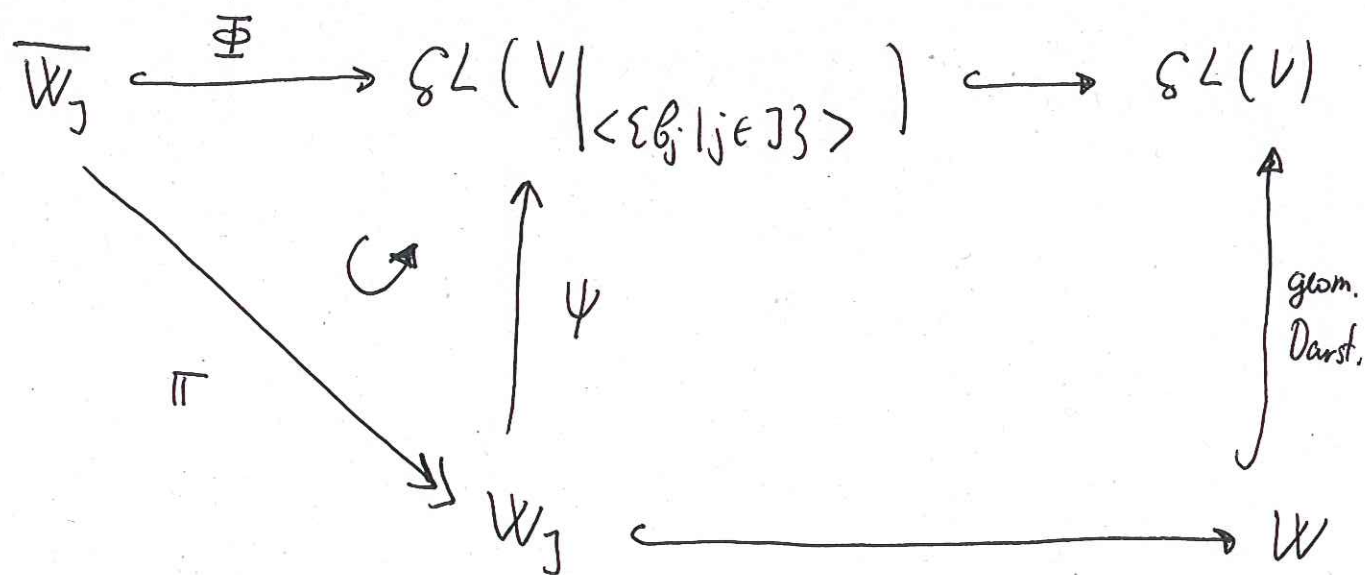 Φ
W̅_J GL(V|_<{b_j | j ∈ J}>) GL(V)
ψ
geom.
Darst.
π
W_J W